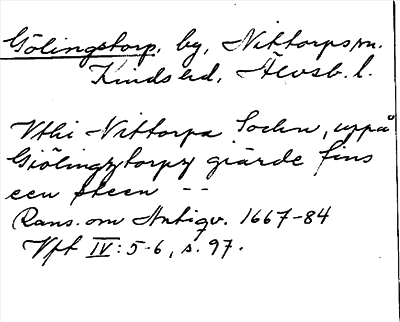 Gölingstorp, by, Nittorps sn.
Kinds hd, Älvsb. l.
Vthi Nittorpa Sochn, uppå
Giölingztorpz giärde fins
een steen --
Rans. om Antiqv. 1667-84
Vft IV: 5-6, s. 97.